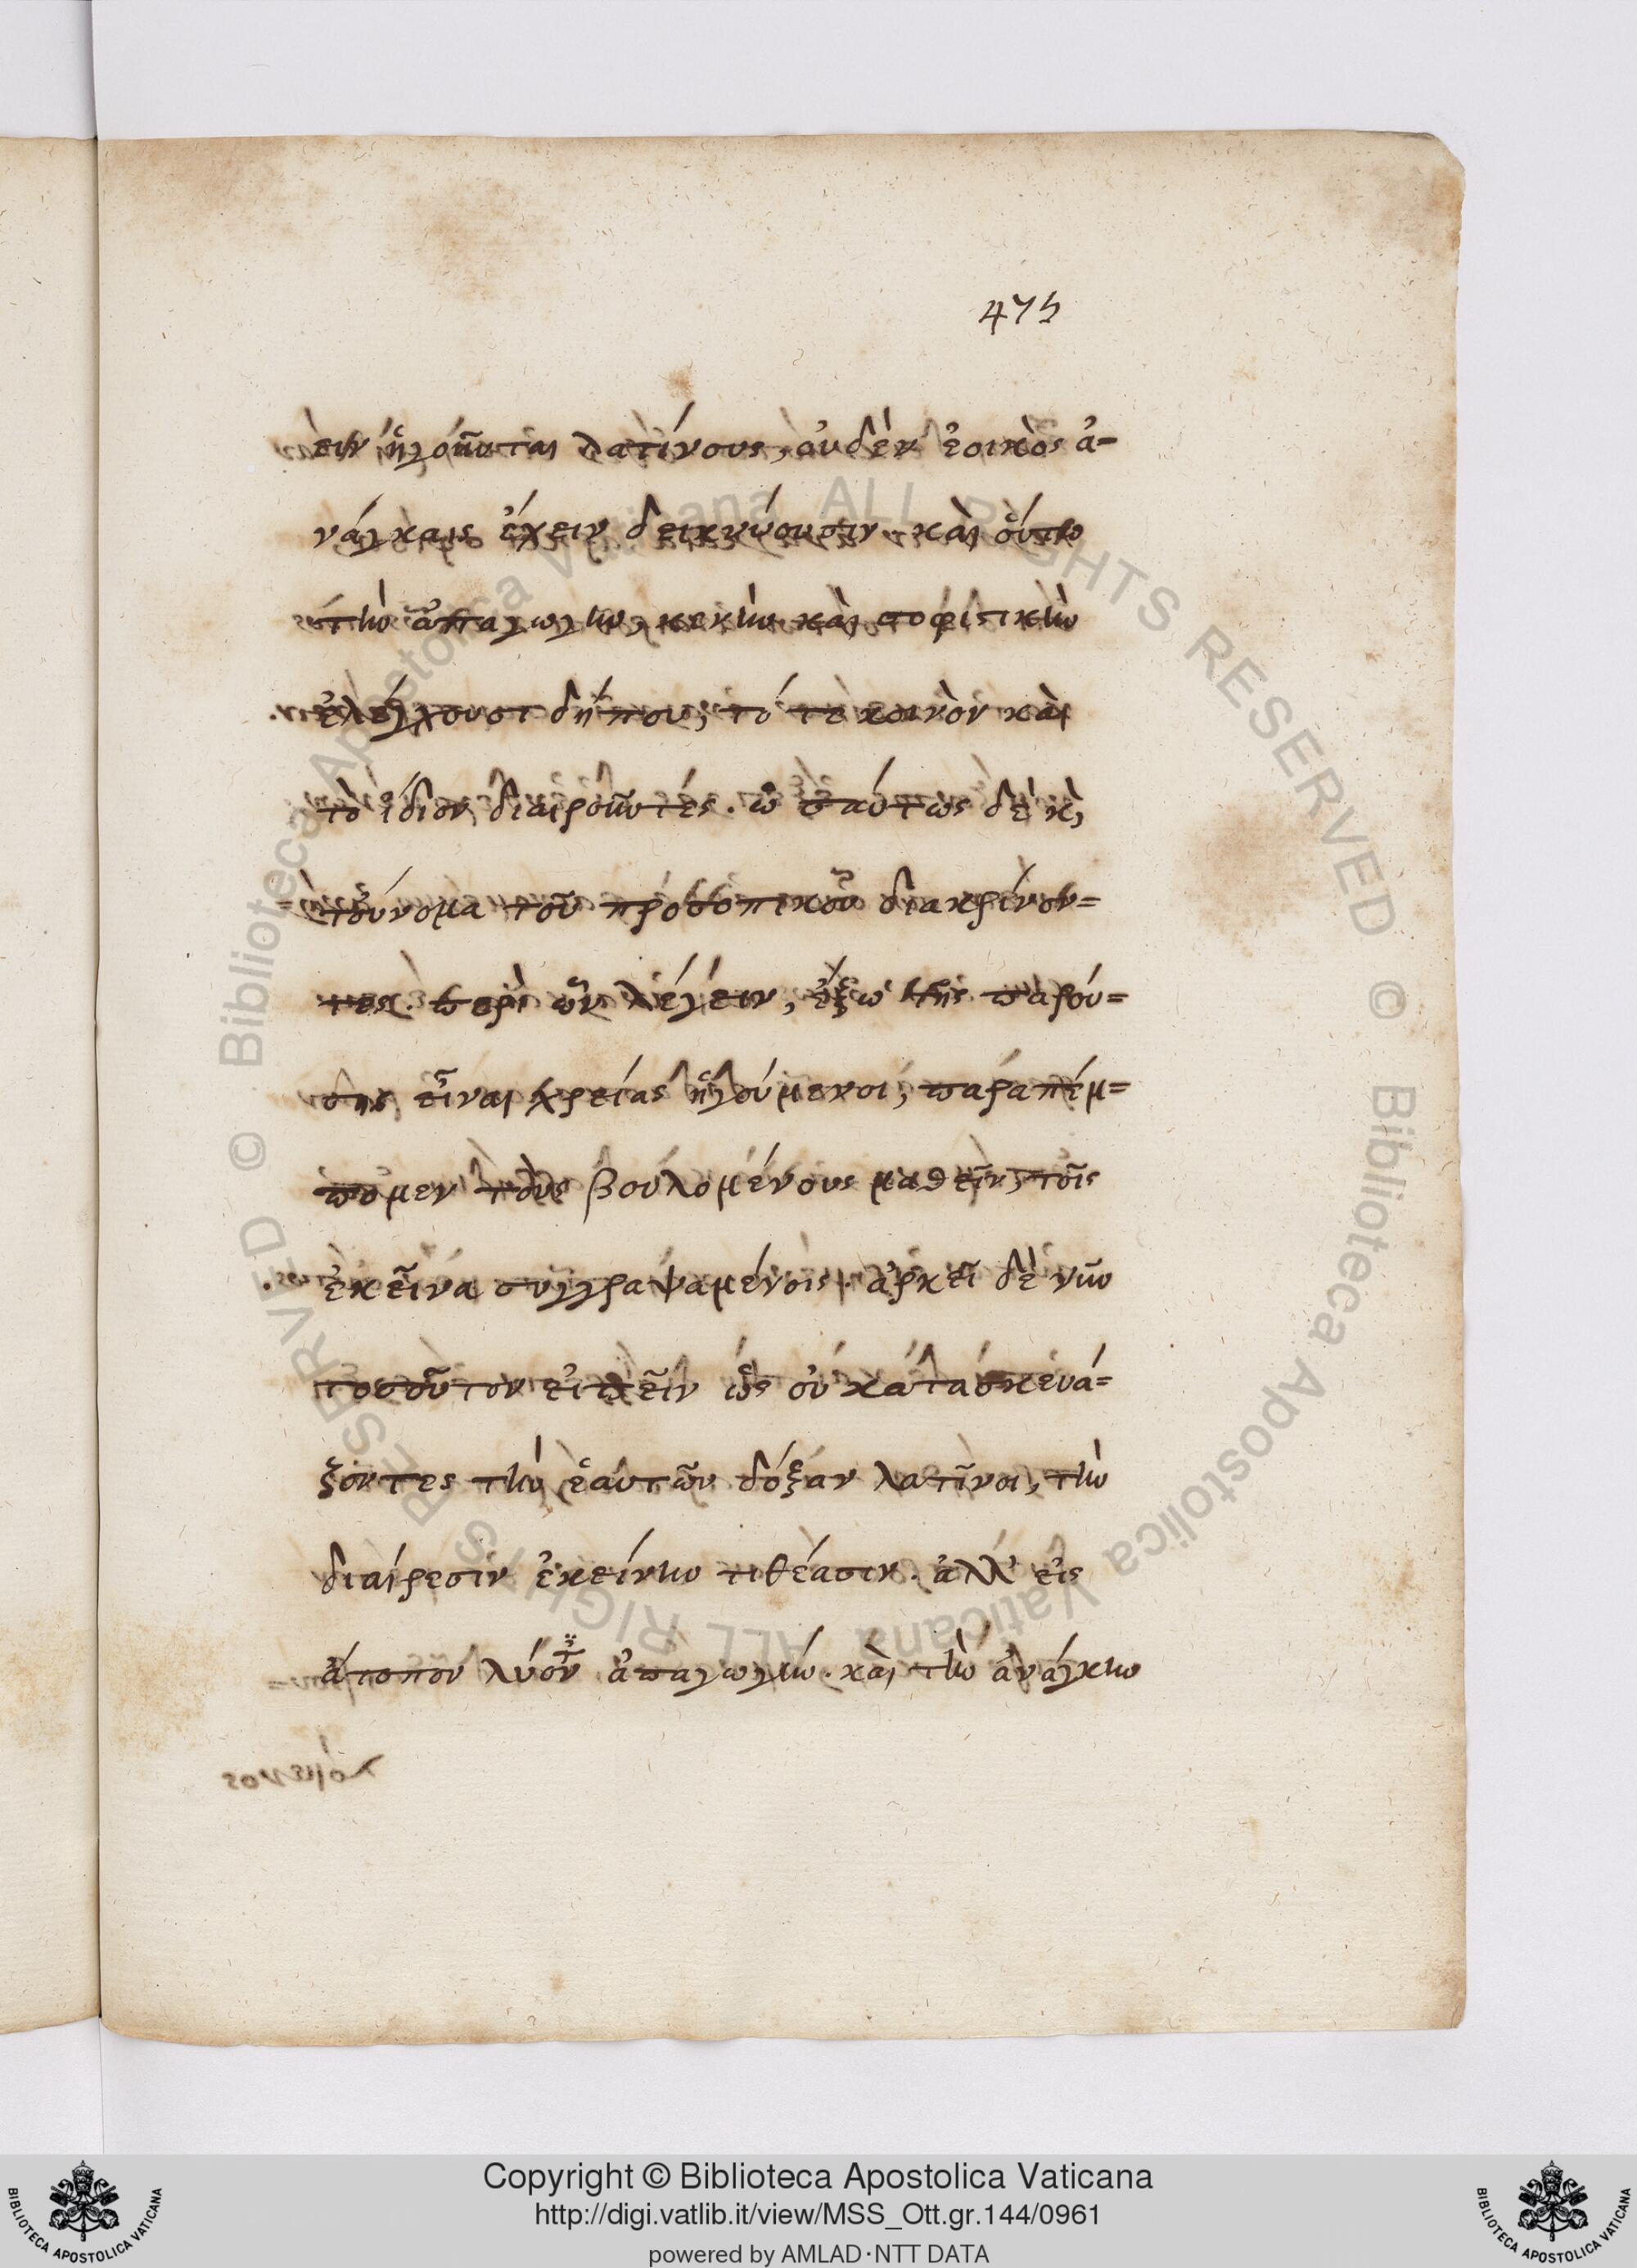 475
ειν ἡγοῦνται λατίνους, οὐδὲν ἐοικὸς ἀ-
νάγκαις ἔχειν δεικνύουσιν. καὶ οὕτω
τὴν ἀπαγωγὴν, κενὴν καὶ σοφιστικὴν
ἐλέγχουσι δήπου, τό τε κοινὸν καὶ
τὸ ἴδιον διαιροῦντές. ὡσαύτως δὲ κ,
τοὔνομα τοῦ προσοπικοῦ διακρίνον=
τες. περὶ ὧν λέγειν, ἔξω τῆς παρού=
σης εἶναι χρείας ἡγούμενοι, παραπέμ=
πομεν τοὺς βουλομένους μαθεῖν, τοῖς
ἐκεῖνα συγγραψαμένοις. ἀρκεῖ δὲ νῦν
τοσοῦτον εἰπεῖν ὡς οὐ κατασκευά=
ζοντες τὴν ἑαυτῶν δόξαν λατῖνοι, τὴν
διαίρεσιν ἐκείνην τιθέασιν. ἀλλ' εἰς
ἄτοπον λύοντ ἀπαγωγὴν. καὶ τὴν ἀνάγκην
Copyright © Biblioteca Apostolica Vaticana
http://digi.vatlib.it/view/MSS_Ott.gr.144/0961
powered by AMLAD·NTT DATA
BIBLIOTECA APOSTOLICA VATICANA
BIBLIOTECA APOSTOLICA VATICANA
© Biblioteca Apostolica Vaticana ALL RIGHTS RESERVED
© Biblioteca Apostolica Vaticana ALL RIGHTS RESERVED